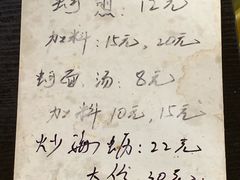 蚵煎：12元
加料：15元，20元
蚵面汤：8元
加料 10元，15元
炒海蛎：22元
大份 30元